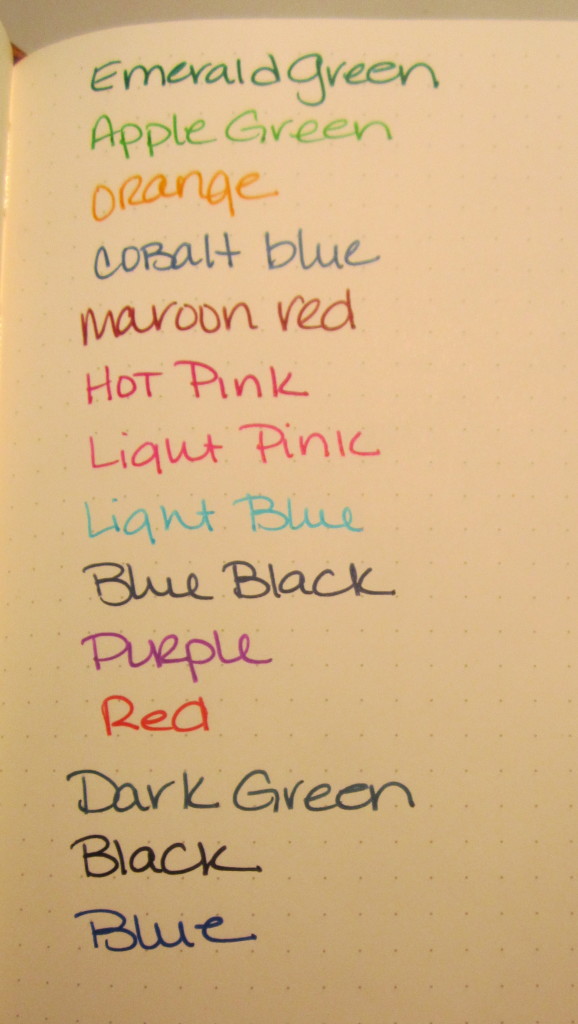 Emerald green
Apple Green
Orange
Cobalt blue
maroon red
Hot Pink
Light Pink
Light Blue
Blue Black
Purple
Red
Dark Green
Black
Blue